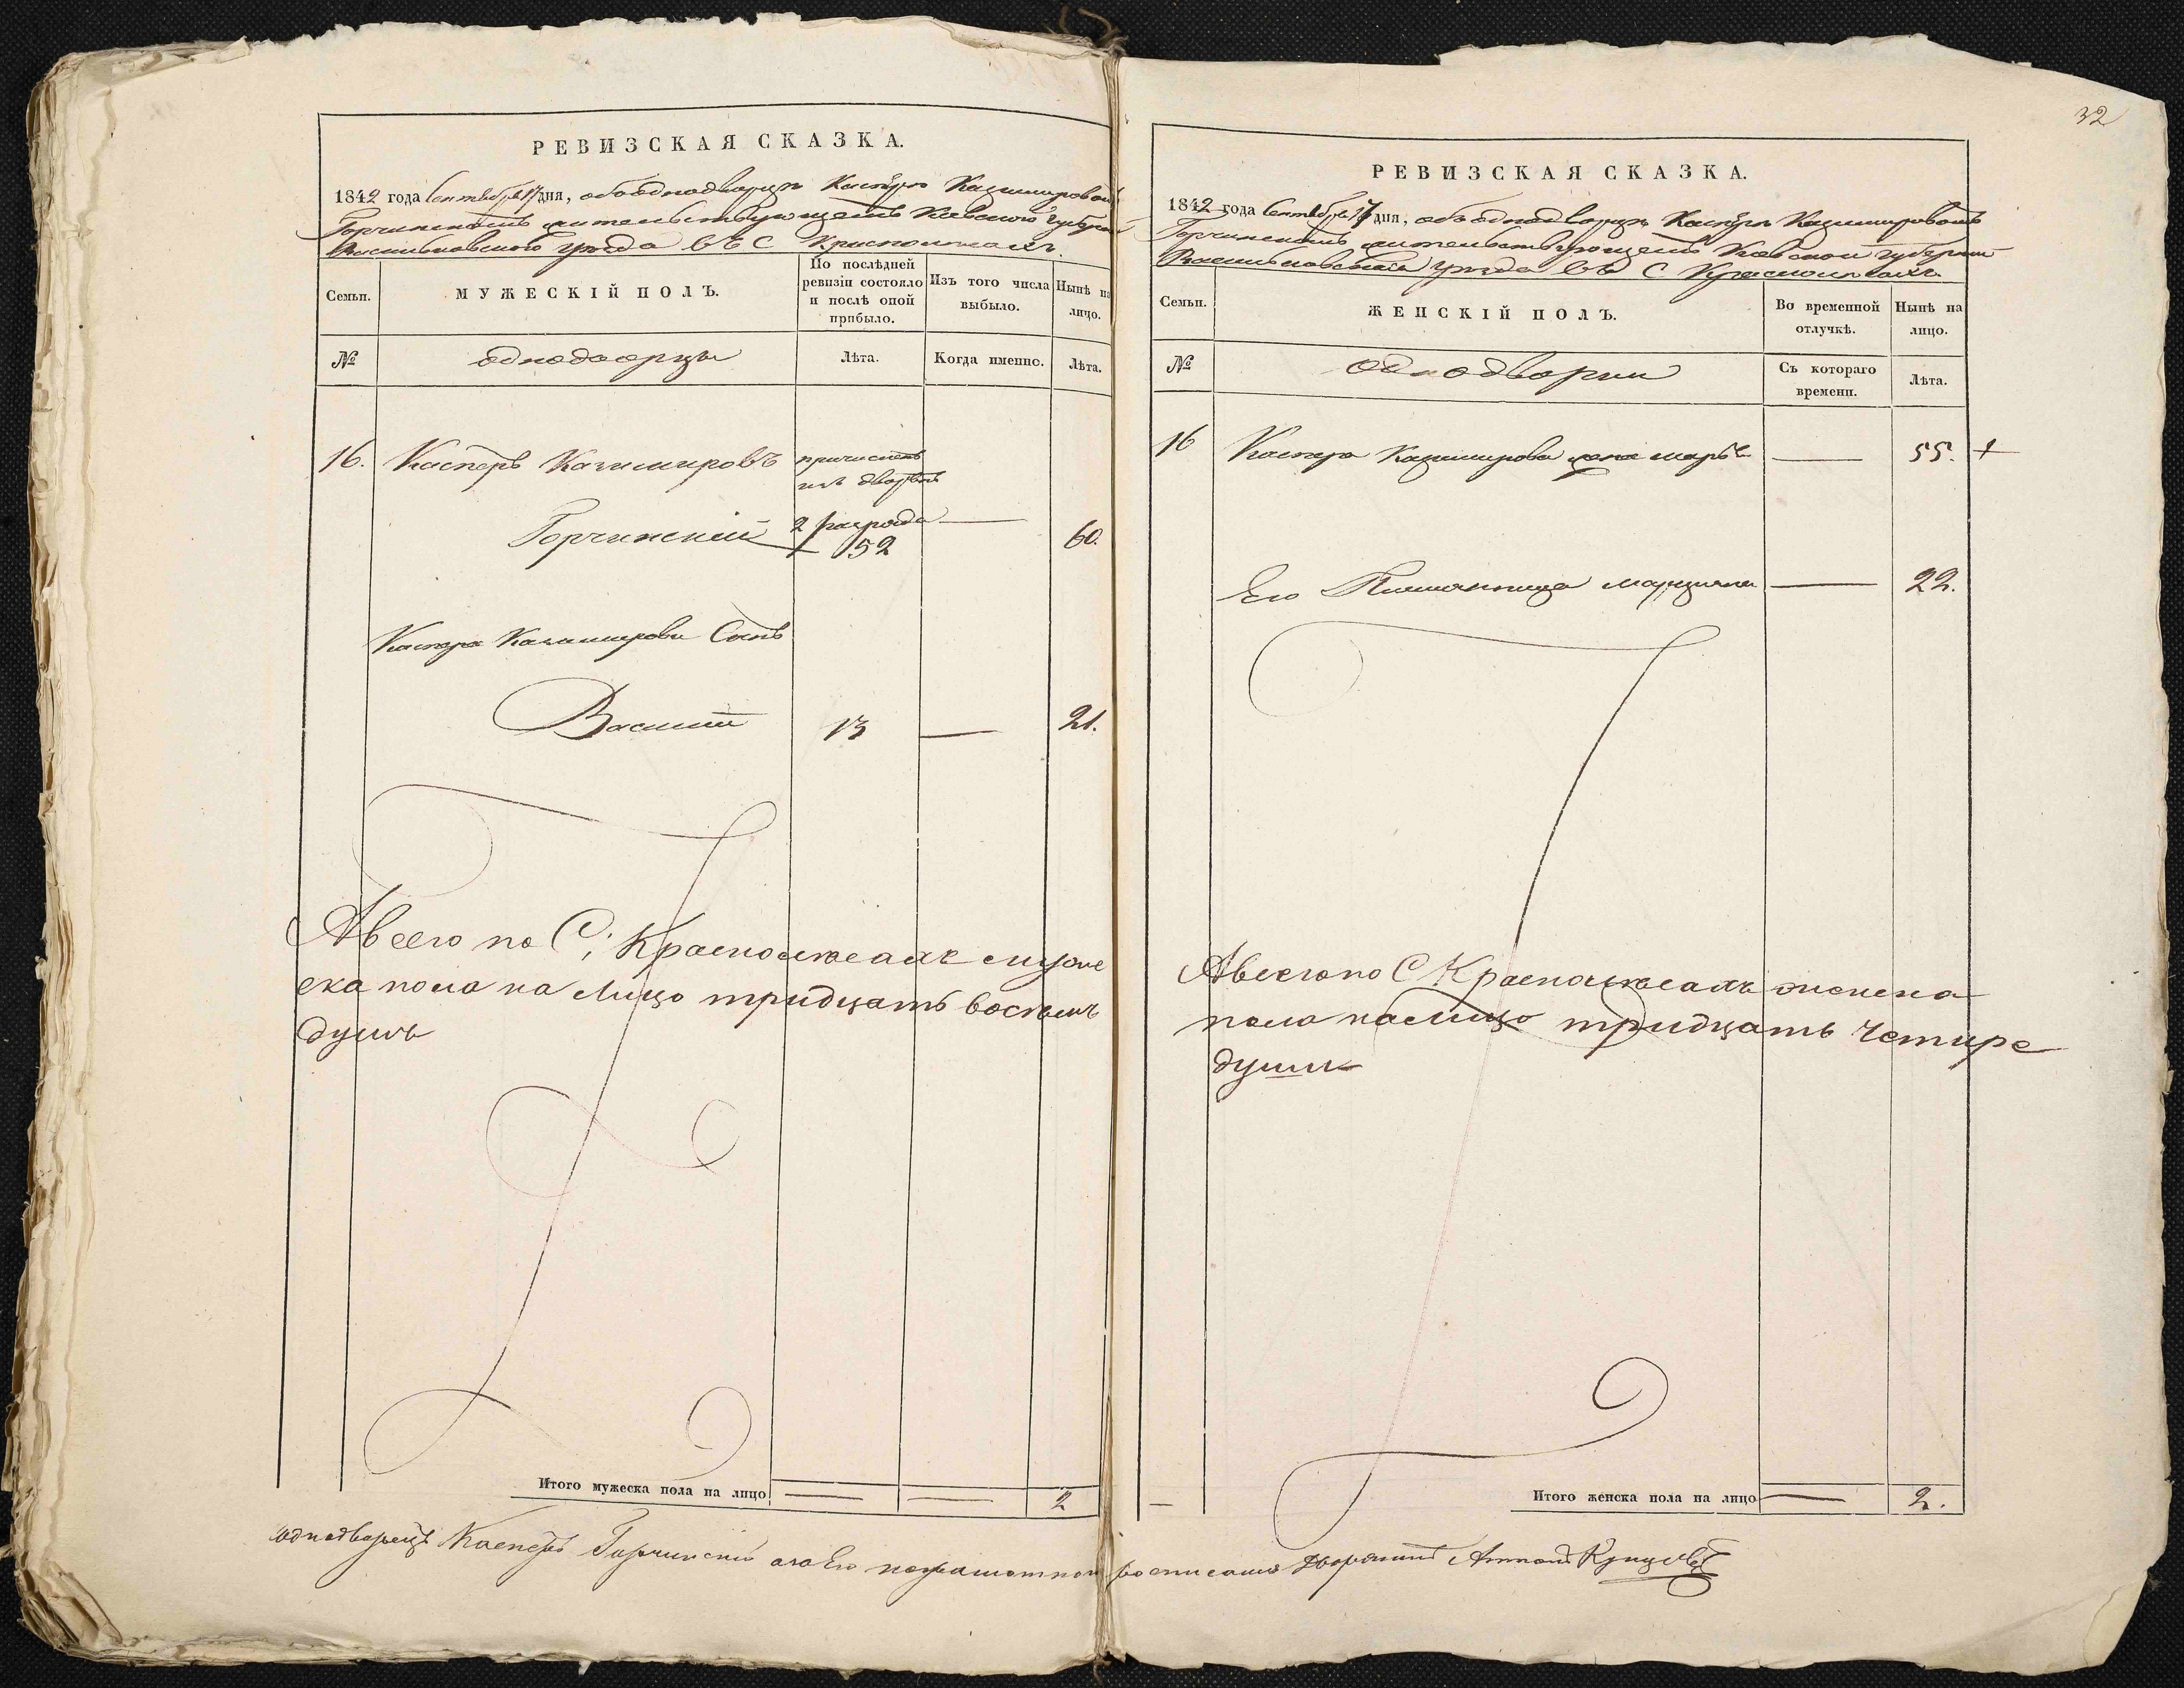 РЕВИЗСКАЯ СКАЗКА.
1842 года Сентября 17 дня, объ однодворцъ Касперъ Казимировомъ
Горчинскомъ жительствующемъ Кіевской Губерніи
Васильковского уезда въ С Краснолесахъ.
Семьи.
МУЖЕСКІЙ ПОЛЪ.
По послѣдней ревизіи состояло и послѣ оной прибыло.
Изъ того числа выбыло.
Нынѣ на лицо.
№
однодворцы
Лѣта.
Когда именно.
Лѣта.
16. Касперъ Казимировъ причисленъ
изъ дворянъ
Горчинскій 2 разряда — 60.
52
Каспера Казимирова Сынъ
Василий 13 — 21.
А всего по С; Краснолесахъ муже
ска пола на лицо тридцать восемъ
душъ
Итого мужеска пола на лицо — — 2
32
РЕВИЗСКАЯ СКАЗКА.
1842 года Сентября 17 дня, объ однодворцъ Касперъ Казимировомъ
Горчинскомъ жительствующемъ Кіевской Губерніи
Васильковского уезда въ С Краснолесахъ
Семьи.
ЖЕНСКІЙ ПОЛЪ.
Во временной отлучкѣ.
Нынѣ на лицо.
№
однодворки
Съ котораго времени.
Лѣта.
16 Каспера Казимирова жена Марья — 55. +
Его Племянница Марцияна — 22.
А всего по С Краснолесахъ женска
пола на лицо тридцать четире
души
Итого женска пола на лицо — 2.
однодворецъ Касперъ Горчинскій а за Его неграмотнои росписался Дворянинъ Антонъ